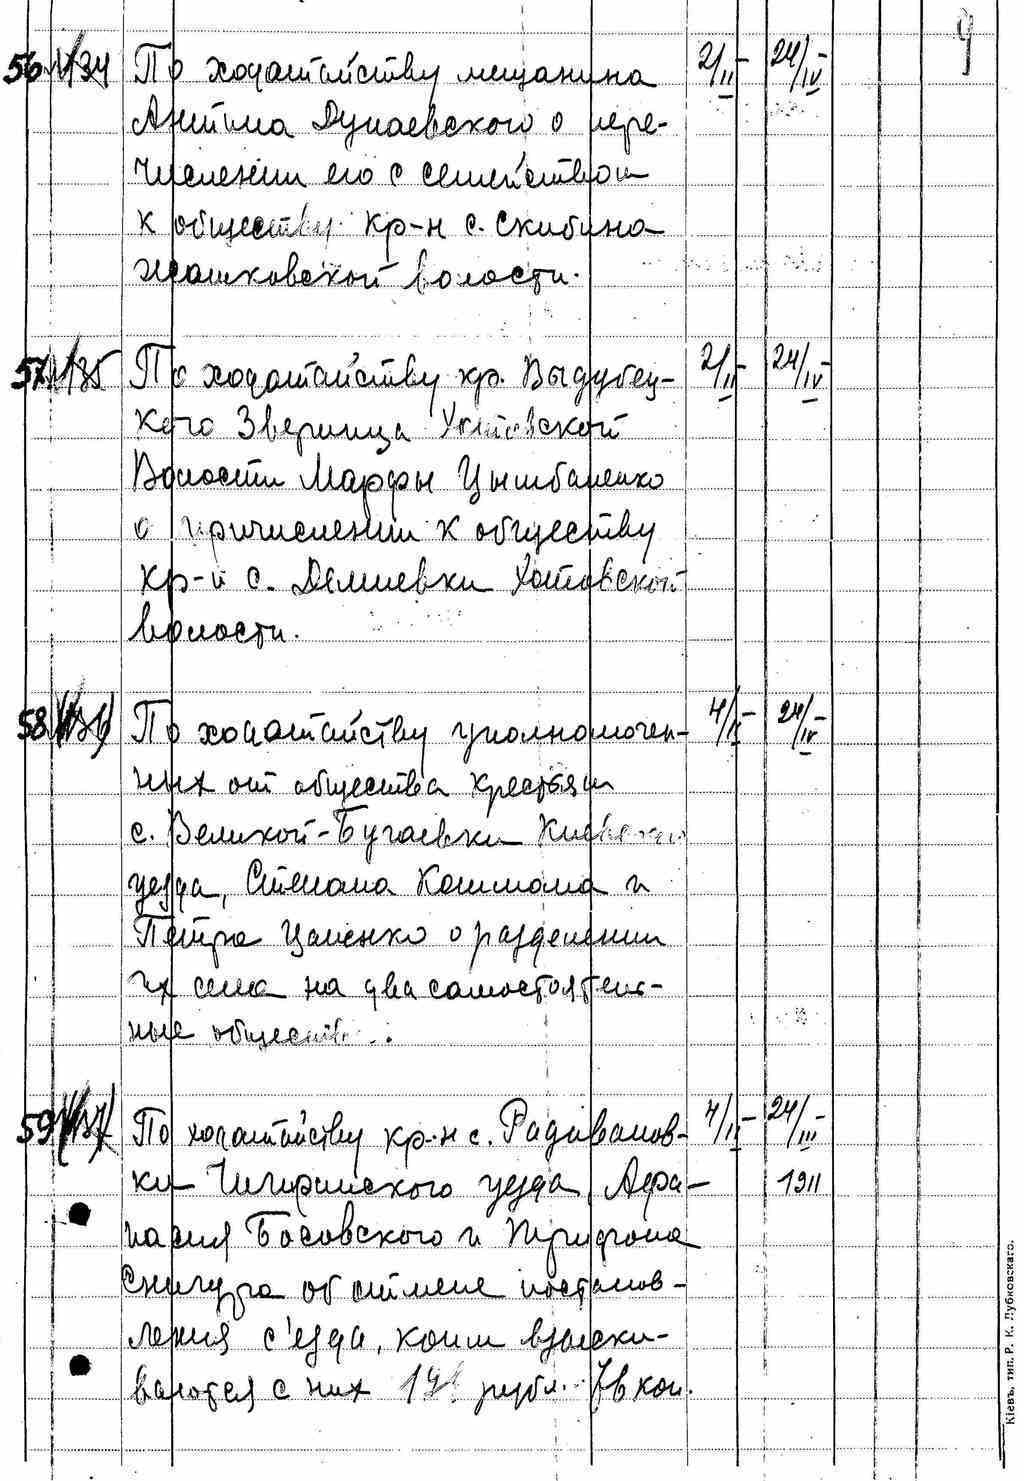 9
56 134 По ходатайству мещанина 2/II – 24/IV –
Антона Дунаевского о пере-
числении его с семейством
к обществу кр-н с. Скибина
жашковской волости.
57 135 По ходатайству кр. Выдубец- 2/II – 24/IV –
кого Зверинца Хотовской
Волости Марфы Цымбаленко
о причислении к обществу
кр-н с. Демиевки Хотовской
волости.
58 136 По ходатайству уполномочен- 4/II – 24/IV –
ных от общества крестьян
с. Великой-Бугаевки Киевского
уезда, Степана Кошмана и
Петра Цапенко о разделении
их села на два самостоятель-
ные общества.
59 137 По ходатайству кр-н с. Радиванов- 4/II – 24/III –
ки Чигиринского уезда, Афа- 1911
насия Босовского и Трифона
Снигура об отмене постанов-
ления с'езда, коим взыски-
ваются с них рубл. коп.
Кіевъ, тип. Р. К. Лубковскаго.